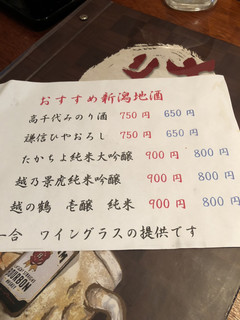 おすすめ新潟地酒
高千代みのり酒 750円 650円
謙信ひやおろし 750円 650円
たかちよ純米大吟醸 900円 800円
越乃景虎純米吟醸 900円 800円
越の鶴 壱醸 純米 900円 800円
一合 ワイングラスの提供です
BOURBON